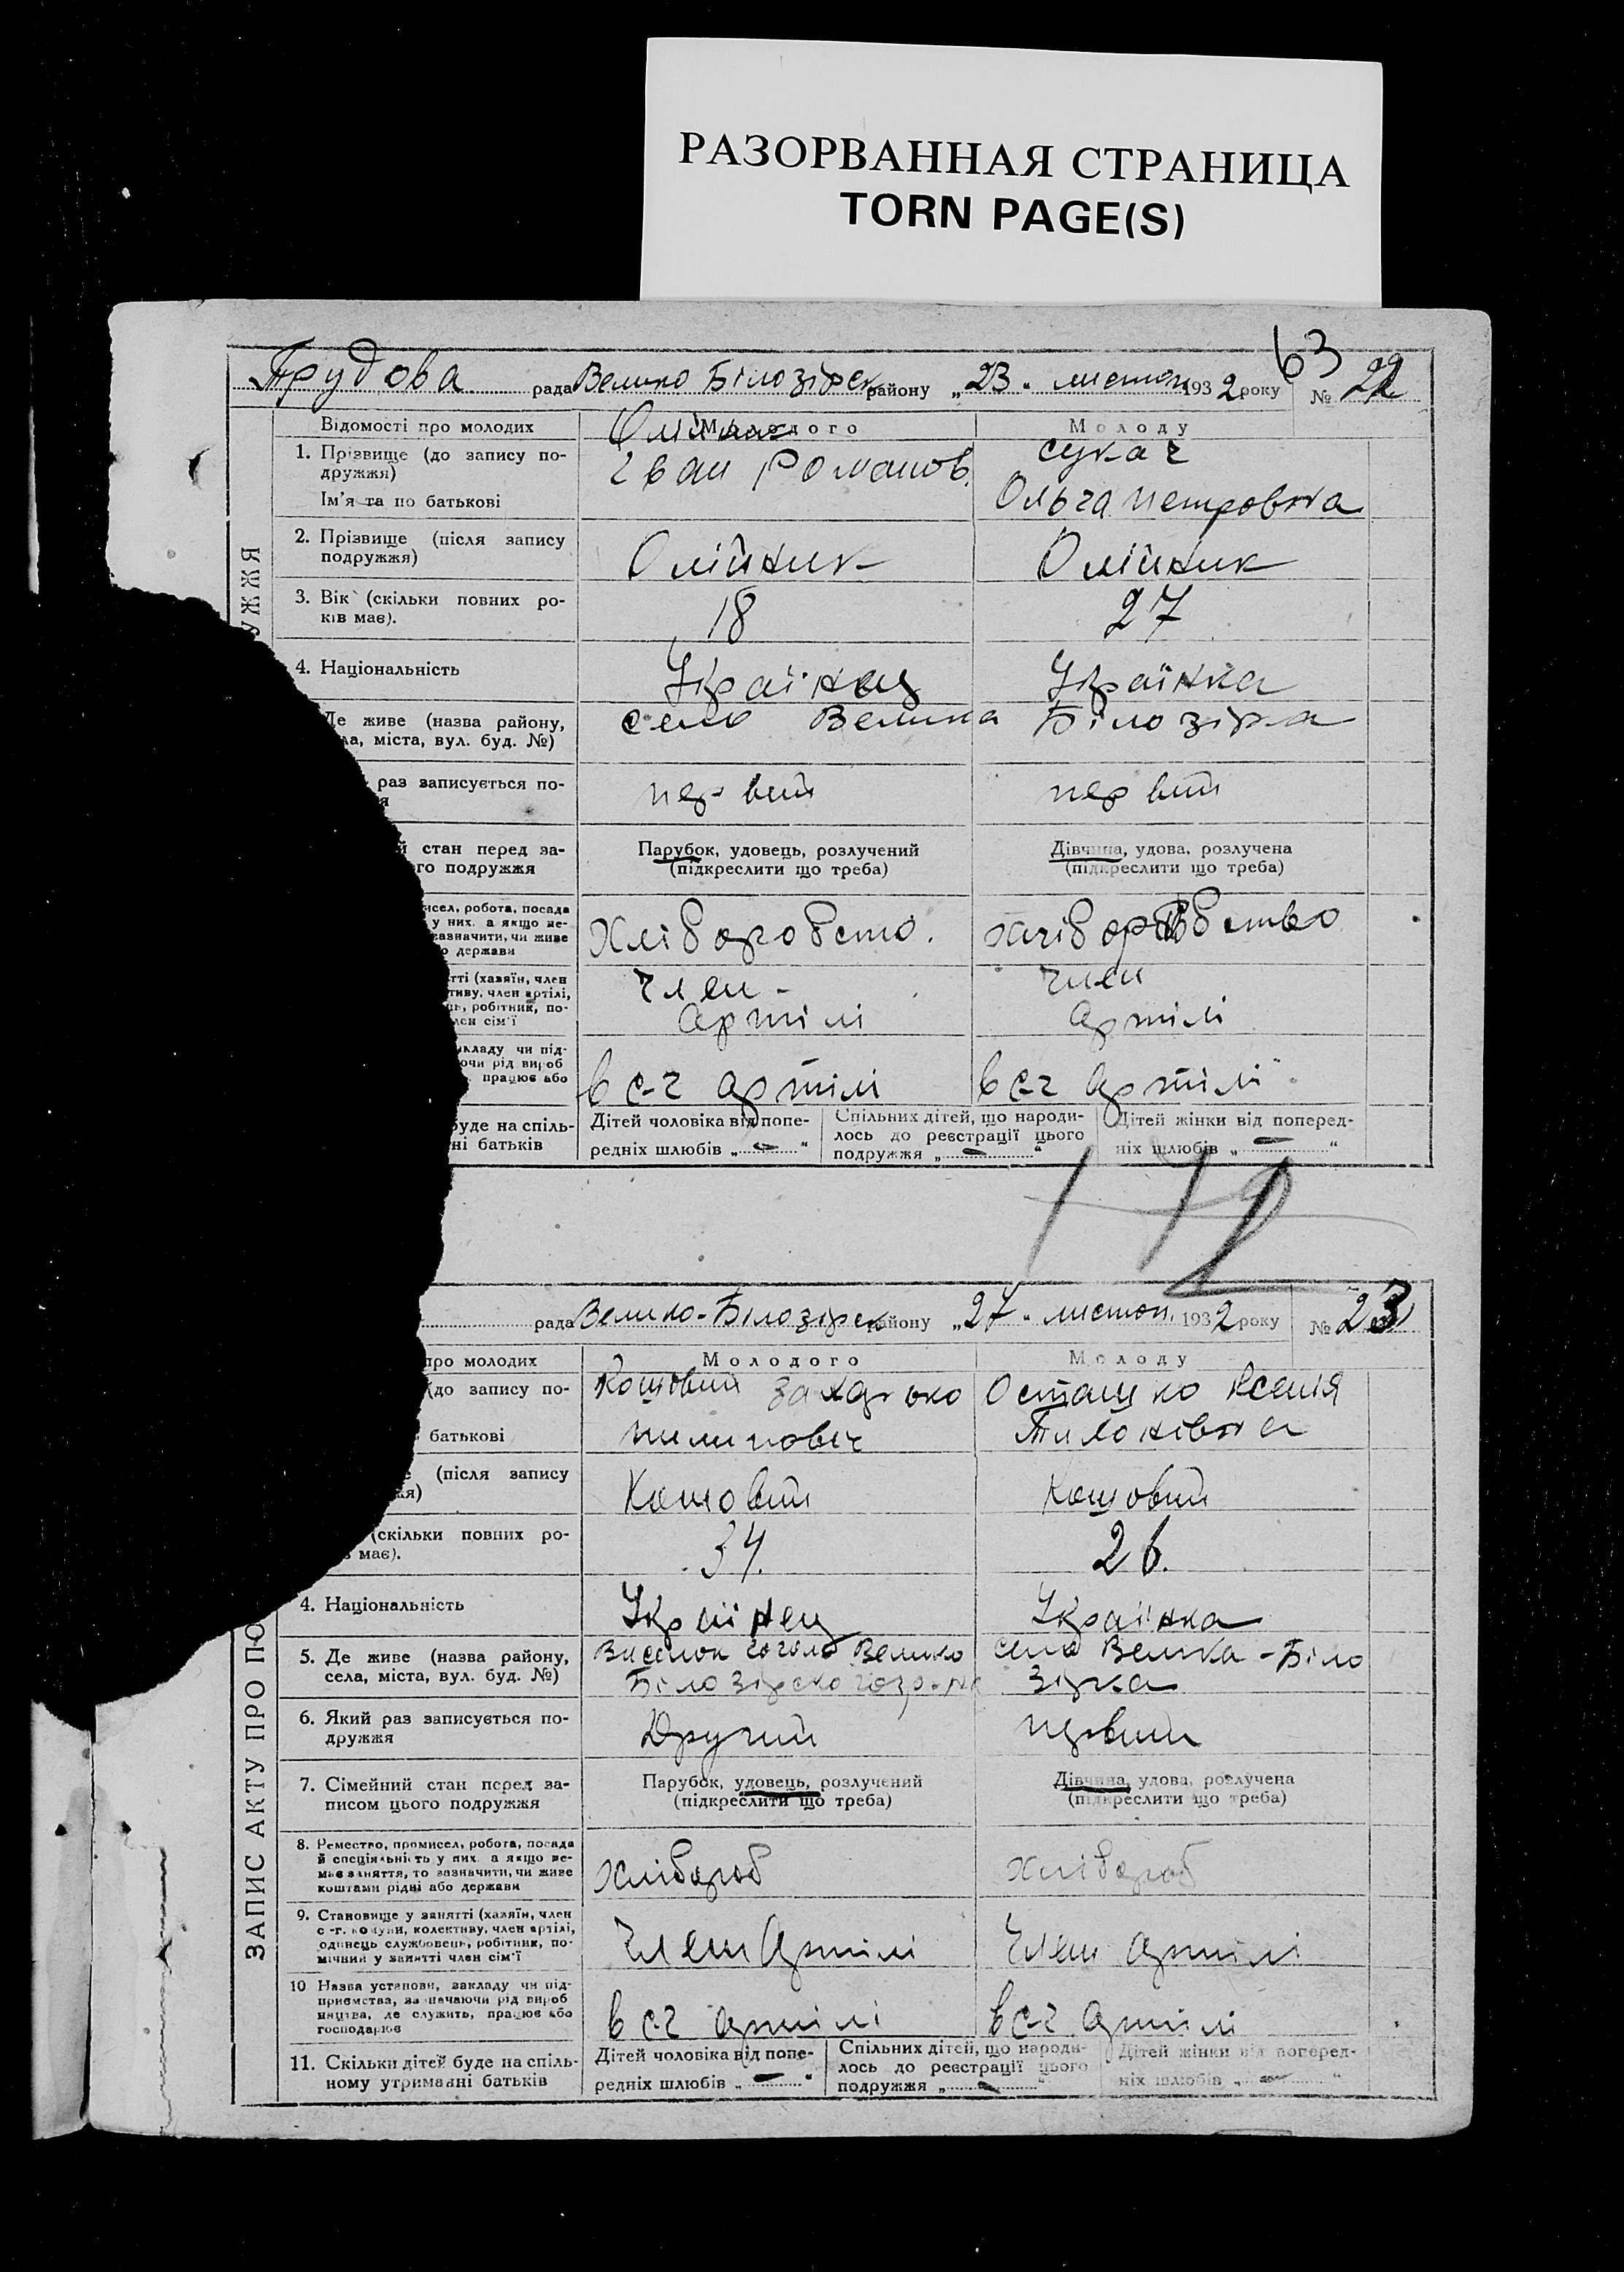 РАЗОРВАННАЯ СТРАНИЦА
TORN PAGE(S)
63
Трудова рада Велико Білозірск району „23" листоп 1932 року № 22
Відомості про молодих Молодого Молоду
1. Прізвище (до запису по-
дружжя)
Ім'я та по батькові
Олійник
Іван Романов.
сукач
Ольга петровна
2. Прізвище (після запису
подружжя)
Олійник Олійник
3. Вік (скільки повних ро-
ків має).
18 27
4. Національність Українец Українка
Де живе (назва району,
ла, міста, вул. буд. №)
село Велика Білозірка
раз записується по-
я
первий первий
й стан перед за-
го подружжя
Парубок, удовець, розлучений
(підкреслити що треба)
Дівчина, удова, розлучена
(підкреслити що треба)
исел, робота, посада
у них, а якщо не-
зазначити, чи живе
о держави
Хліборобство. хліборобство
тті (хазяїн, член
тиву, член артілі,
ць, робітник, по-
лен сім'ї
член - артілі
член артілі
кладу чи під-
ючи рід вироб
працює або
в с-г артілі в с-г артілі
буде на спіль-
ні батьків
Дітей чоловіка від попе-
редніх шлюбів „ "
Спільних дітей, що народи-
лось до реєстрації цього
подружжя „ "
Дітей жінки від поперед-
ніх шлюбів „ "
УЖЖЯ
рада Велико-Білозірск району „27" листоп. 1932 року № 23
про молодих Молодого Молоду
(до запису по-
батькові
Кошовий Захарько
пилипович
Осташко Ксенія
Тихонівна
(після запису
жя)
Кошовий Кошовий
(скільки повних ро-
має).
34. 26.
4. Національність Українец Українка
5. Де живе (назва району,
села, міста, вул. буд. №)
Виселок Гоголь Велико
Білозірского р-на
село Велика-Біло
зірка
6. Який раз записується по-
дружжя
Другий первий
7. Сімейний стан перед за-
писом цього подружжя
Парубок, удовець, розлучений
(підкреслити що треба)
Дівчина, удова, розлучена
(підкреслити що треба)
8. Ремество, промисел, робота, посада
й спеціяльність у них, а якщо не-
має заняття, то зазначити, чи живе
коштами рідні або держави
хлібороб хлібороб
9. Становище у занятті (хазяїн, член
с.-г. комуни, колективу, член артілі,
одинець службовець, робітник, по-
мічний у занятті член сім'ї
Член Артілі Член артілі
10 Назва установи, закладу чи під-
приємства, зазначаючи рід вироб
ництва, де служить, працює або
господарює
в с-г артілі в с-г артілі
11. Скільки дітей буде на спіль-
ному утриманні батьків
Дітей чоловіка від попе-
редніх шлюбів „ "
Спільних дітей, що народи-
лось до реєстрації цього
подружжя „ "
Дітей жінки від поперед-
ніх шлюбів „ "
ЗАПИС АКТУ ПРО ПО